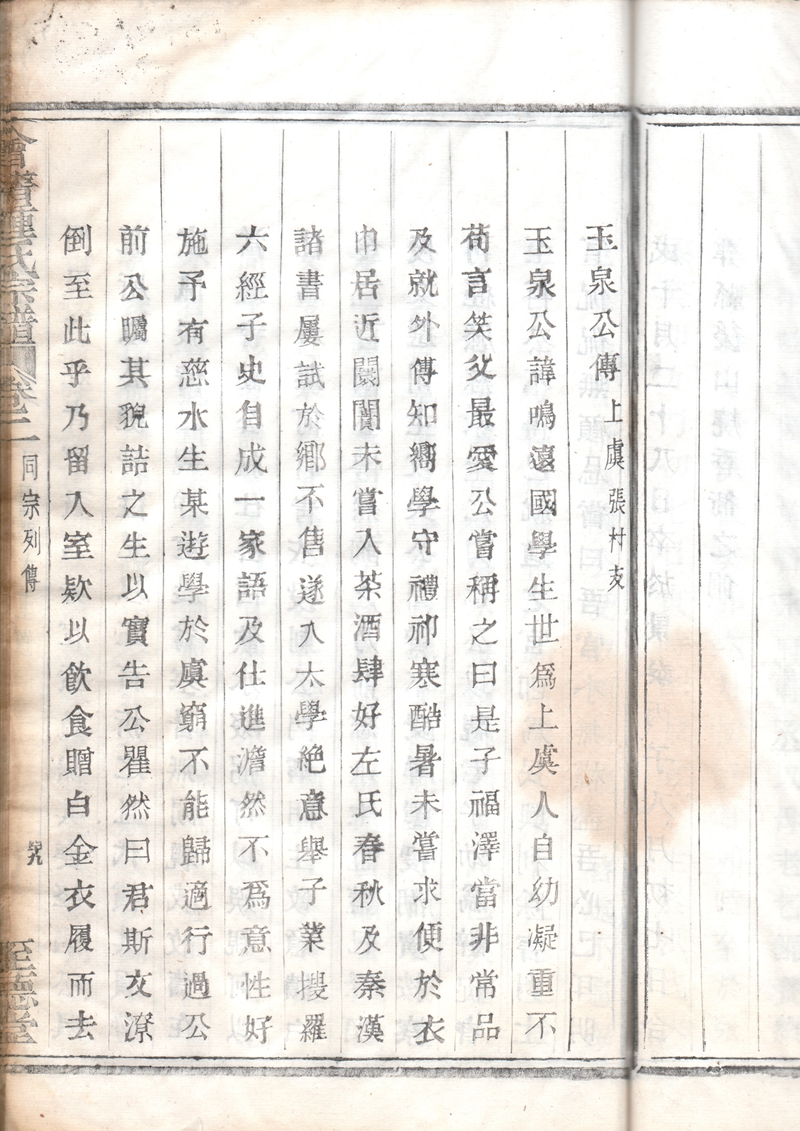 玉泉公傳上虞張村支
玉泉公諱鳴遠國學生世爲上虞人自幼凝重不
苟言笑父最愛公嘗稱之曰是子福澤當非常品
及就外傅知嚮學守禮祁寒酷暑未嘗求便於衣
巾居近闤闠未嘗入茶酒肆好左氏春秋及秦漢
諸書屢試於鄉不售遂入太學絶意舉子業搜羅
六經子史自成一家語及仕進澹然不爲意性好
施予有慈水生某遊學於虞窮不能歸適行過公
前公矚其貌詰之生以實告公瞿然曰君斯文潦
倒至此乎乃留入室欵以飲食贈白金衣履而去
會稽鍾氏宗譜 卷二 同宗列傳 至德堂